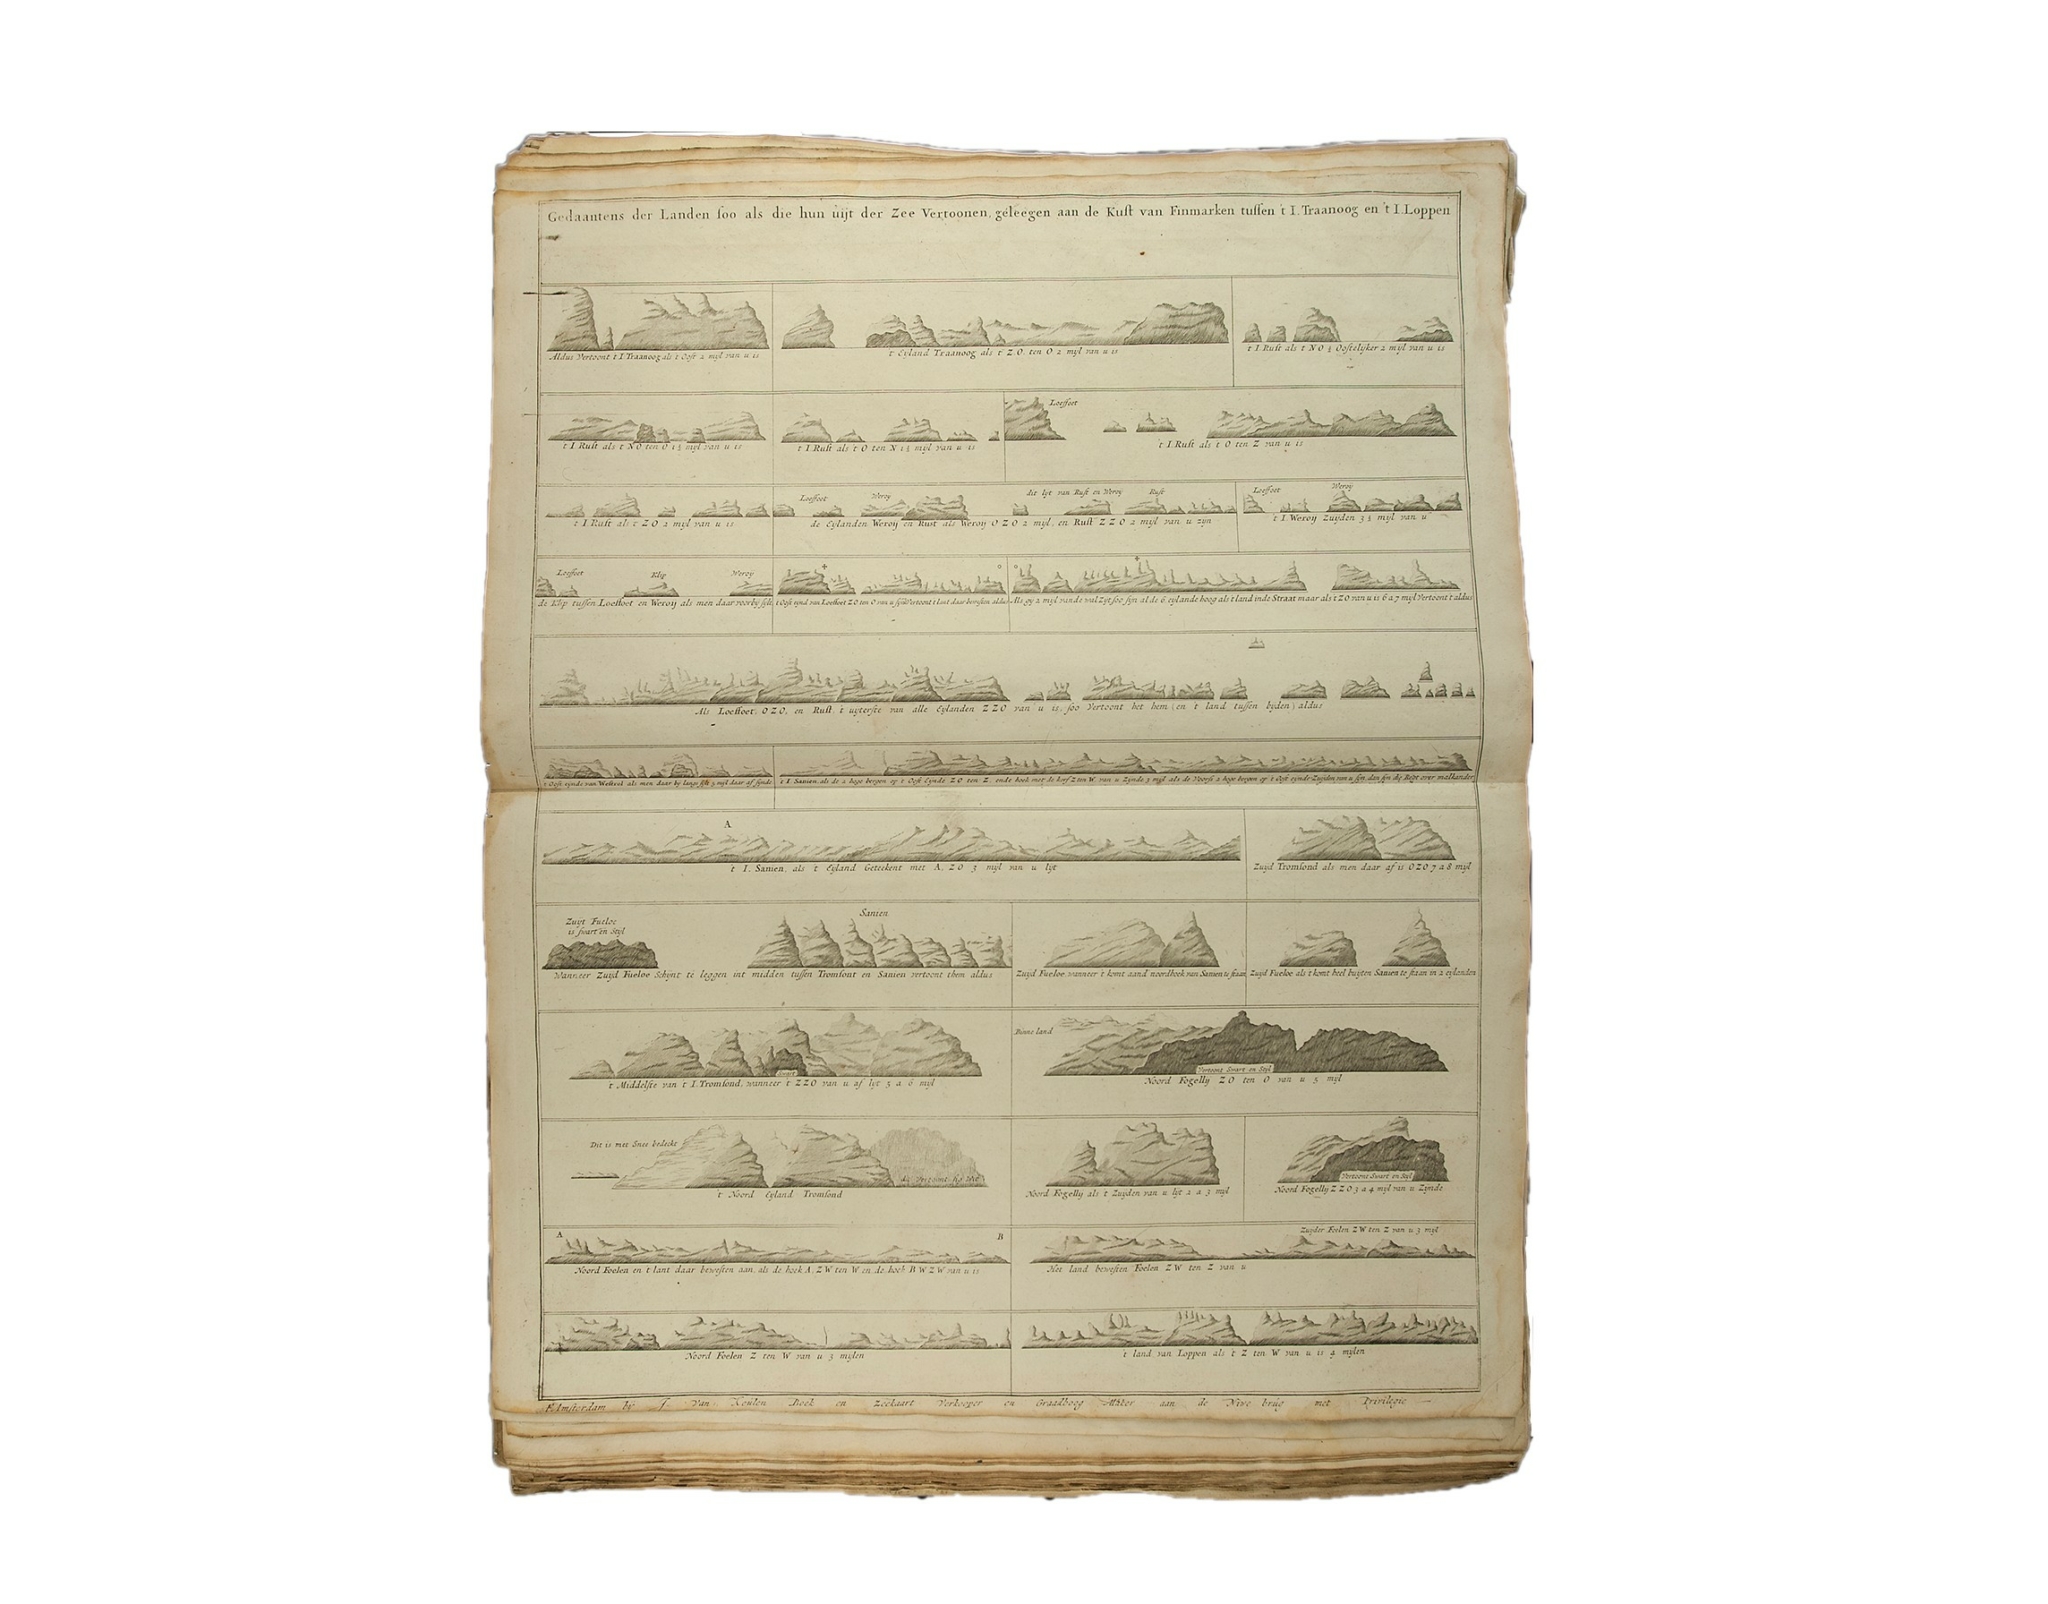 Gedaantens der Landen soo als die hun uijt der Zee Vertoonen, geleegen aan de Kust van Finmarken tussen 't I. Traanoog en 't I. Loppen
Aldus Vertoont t I. Traanoog als t Oost 2 mijl van u is
t Eyland Traanoog als t Z.O. ten O 2 mijl van u is
t I. Rust als t N O ½ Oostelijker 2 mijl van u is
t I. Rust als t N O ten O 1½ mijl van u is
t I. Rust als t O ten N 1½ mijl van u is
Loeffoet
't I. Rust als t O ten Z van u is
t I. Rust als t Z O 2 mijl van u is
Loeffoet
Weroy
dit lyt van Rust en Weroy
Rust
de Eylanden Weroij en Rust als Weroij O Z O 2 mijl, en Rust Z Z O 2 mijl van u zijn
Loeffoet
Weroij
t I. Weroij Zuijden 3½ mijl van u
Loeffoet
Klip
Weroy
de Klip tussen Loeffoet en Weroij als men daar voorbij seilt
t Oost eynd van Loeffoet Z O ten O van u sijnde Vertoont t lant daar bewesten aldus
Als gy 2 mijl van de wal Zyt soo sijn al de 6 eylande hoog als t land inde Straat maar als t Z O van u is 6 a 7 mijl Vertoont t aldus
Als Loeffoet, O Z O, en Rust, t uyterste van alle Eylanden Z Z O van u is, soo Vertoont het hem (en t land tussen bijden) aldus
t Oost eynde van Westvel als men daar bij langs seilt 3 mijl daar af sijnde
t I. Sanien, als de 2 hoge bergen op t Oost Eynde Z O ten Z, ende hoek met de kerf Z ten W van u Zijnde 3 mijl als de Noorse 2 hoge bergen op t Oost eynde Zuijden van u sijn dan sijn die Regt over malkander
A
t I. Sanien, als t Eyland Geteekent met A, Z O 3 mijl van u lijt
Zuijd Tromsond als men daar af is O Z O 7 a 8 mijl
Zuijt Fueloe
is swart en Steijl
Sanien
Wanneer Zuijd Fueloe Schijnt te leggen int midden tussen Tromsont en Sanien vertoont them aldus
Zuijd Fueloe, wanneer t komt aand noordhoek van Sanien te staan
Zuijd Fueloe als t komt heel buijten Sanien te staan in 2 eylanden
Swart
t Middelste van t I. Tromsond, wanneer t Z Z O van u af lyt 5 a 6 mijl
Binne land
Vertoont Swart en Stijl
Noord Fogelly Z O ten O van u 5 mijl
Dit is met Snee bedeckt
dit Vertoont hy Wit
t Noord Eyland Tromsond
Noord Fogelly als t Zuijden van u lijt 2 a 3 mijl
Vertoont Swart en Stijl
Noord Fogelly Z Z O 3 a 4 mijl van u Zijnde
A
B
Noord Foelen en t lant daar bewesten aan, als de hoek A, Z W ten W en de hoek B W Z W van u is
Zuijder Foelen Z W ten Z van u 3 mijl
Het land bewesten Foelen Z W ten Z van u
Noord Foelen Z ten W van u 3 mijlen
't land van Loppen als t Z ten W van u is 4 mijlen
t'Amsterdam bij J. Van Keulen Boek en Zeekaart Verkooper en Graadboog Maker aan de Nuwe brug met Privilegie